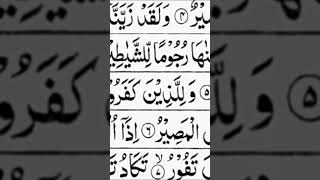 صِيْرٌ ۴ وَلَقَدْ زَيَّنَّا
نٰهَا رُجُوْمًا لِّلشَّيٰطِيْ
۵ وَ لِلَّذِيْنَ كَفَرُوْ
الْمَصِيْرُ ۶ اِذَاۤ اُ
تَفُوْرُ ۷ تَكَادُ تَ